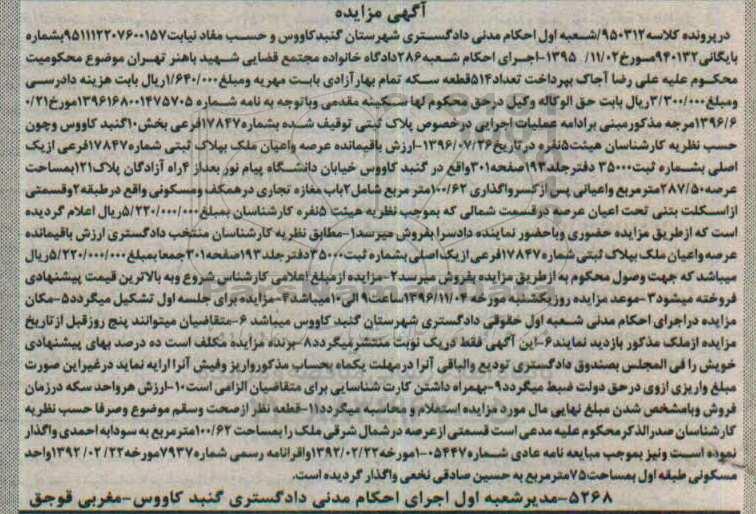 آگهی مزایده
در پرونده کلاسه ۹۵۰۳۱۲/شعبه اول احکام مدنی دادگستری شهرستان گنبدکاووس و حسب مفاد نیابت ۹۵۱۱۱۲۲۰۷۶۰۰۱۵۷ بشماره
بایگانی ۹۴۰۱۳۲ مورخ ۱۱/۰۲/ ۱۳۹۵-اجرای احکام شعبه ۲۸۶ دادگاه خانواده مجتمع قضایی شهید باهنر تهران موضوع محکومیت
محکوم علیه علی رضا آجاک بپرداخت تعداد ۵۱۴ قطعه سکه تمام بهار آزادی بابت مهریه و مبلغ ۱/۶۴۰/۰۰۰ ریال بابت هزینه دادرسی
و مبلغ ۳/۳۰۰/۰۰۰ ریال بابت حق الوکاله وکیل در حق محکوم لها سکینه مقدمی و باتوجه به نامه شماره ۱۳۹۶۱۶۸۰۰۱۴۷۵۷۰۵ مورخ ۰/۲۱
۱۳۹۶/۶ مرجه مذکور مبنی بر ادامه عملیات اجرایی در خصوص پلاک ثبتی توقیف شده بشماره ۱۷۸۴۷ فرعی بخش ۱۰ گنبد کاووس و چون
حسب نظریه کارشناسان هیئت ۵ نفره در تاریخ ۱۳۹۶/۰۷/۲۶-ارزش باقیمانده عرصه و اعیان ملک بپلاک ثبتی شماره ۱۷۸۴۷ فرعی از یک
اصلی بشماره ثبت ۳۵۰۰۰ دفتر جلد ۱۹۳ صفحه ۳۰۱ واقع در گنبد کاووس خیابان دانشگاه پیام نور بعد از ۴ راه آزادگان پلاک ۱۲۱ بمساحت
عرصه ۲۸۷/۵۰ متر مربع و اعیانی پس از کسر واگذاری ۱۰۰/۶۲ متر مربع شامل ۲ باب مغازه تجاری در همکف و مسکونی واقع در طبقه ۲ و قسمتی
از اسکلت بتنی تحت اعیان عرصه در قسمت شمالی که بموجب نظریه هیئت ۵ نفره کارشناسان بمبلغ ۵/۲۲۰/۰۰۰/۰۰۰ ریال اعلام گردیده
است که از طریق مزایده حضوری و باحضور نماینده دادسرا بفروش میرسد ۱-مطابق نظریه کارشناسان منتخب دادگستری ارزش باقیمانده
عرصه و اعیان ملک بپلاک ثبتی شماره ۱۷۸۴۷ فرعی از یک اصلی بشماره ثبت ۳۵۰۰۰ دفتر جلد ۱۹۳ صفحه ۳۰۱ جمعا بمبلغ ۵/۲۲۰/۰۰۰/۰۰۰ ریال
میباشد که جهت وصول محکوم به از طریق مزایده بفروش میرسد ۲-مزایده از مبلغ اعلامی کارشناس شروع و به بالاترین قیمت پیشنهادی
فروخته میشود ۳-موعد مزایده روز یکشنبه مورخه ۱۳۹۶/۱۱/۰۴ ساعت ۹ الی ۱۰ میباشد ۴-مزایده برای جلسه اول تشکیل میگردد ۵-مکان
مزایده در اجرای احکام مدنی شعبه اول حقوقی دادگستری شهرستان گنبد کاووس میباشد ۶-متقاضیان میتوانند پنج روز قبل از تاریخ
مزایده از ملک مذکور بازدید نمایند ۶-این آگهی فقط در یک نوبت منتشر میگردد ۸-برنده مزایده مکلف است ده درصد بهای پیشنهادی
خویش را فی المجلس بصندوق دادگستری تودیع و الباقی آنرا در مهلت یکماه بحساب مذکور واریز و فیش آنرا ارایه نماید در غیر این صورت
مبلغ واریزی از وی در حق دولت ضبط میگردد ۹-بهمراه داشتن کارت شناسایی برای متقاضیان الزامی است ۱۰-ارزش هر واحد سکه در زمان
فروش و بامشخص شدن مبلغ نهایی مال مورد مزایده استعلام و محاسبه میگردد ۱۱-قطعه نظر از صحت و سقم موضوع و صرفا حسب نظریه
کارشناسان صدرالذکر محکوم علیه مدعی است قسمتی از عرصه در شمال شرقی ملک را بمساحت ۱۰۰/۶۲ متر مربع به سودابه احمدی واگذار
نموده است و نیز بموجب مبایعه نامه عادی شماره ۰۵۴۴۷-۱ مورخه ۱۳۹۲/۰۲/۲۲ و اقرارنامه رسمی شماره ۷۹۳۷ مورخه ۱۳۹۲/۰۲/۲۲ واحد
مسکونی طبقه اول بمساحت ۷۵ متر مربع به حسین صادقی نخعی واگذار گردیده است.
۵۲۶۸-مدیر شعبه اول اجرای احکام مدنی دادگستری گنبد کاووس-مغربی قوجق